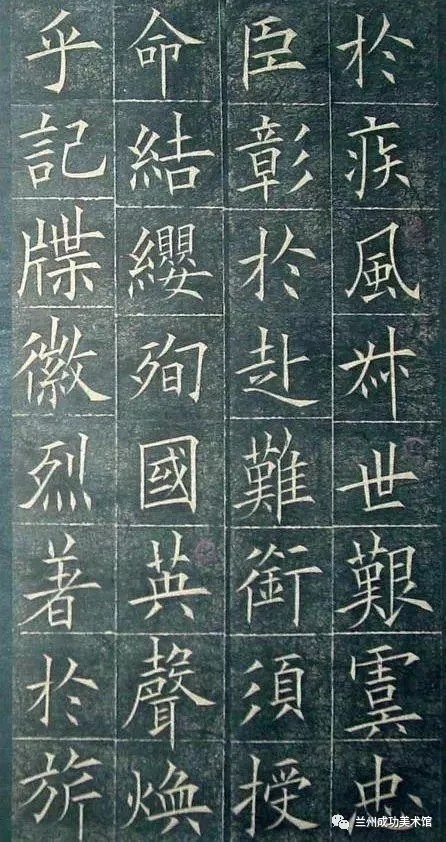 於疾風叔世艱虞忠
臣彰於赴難銜須授
命結纓殉國英聲煥
乎記牒徽烈著於旂
兰州成功美术馆